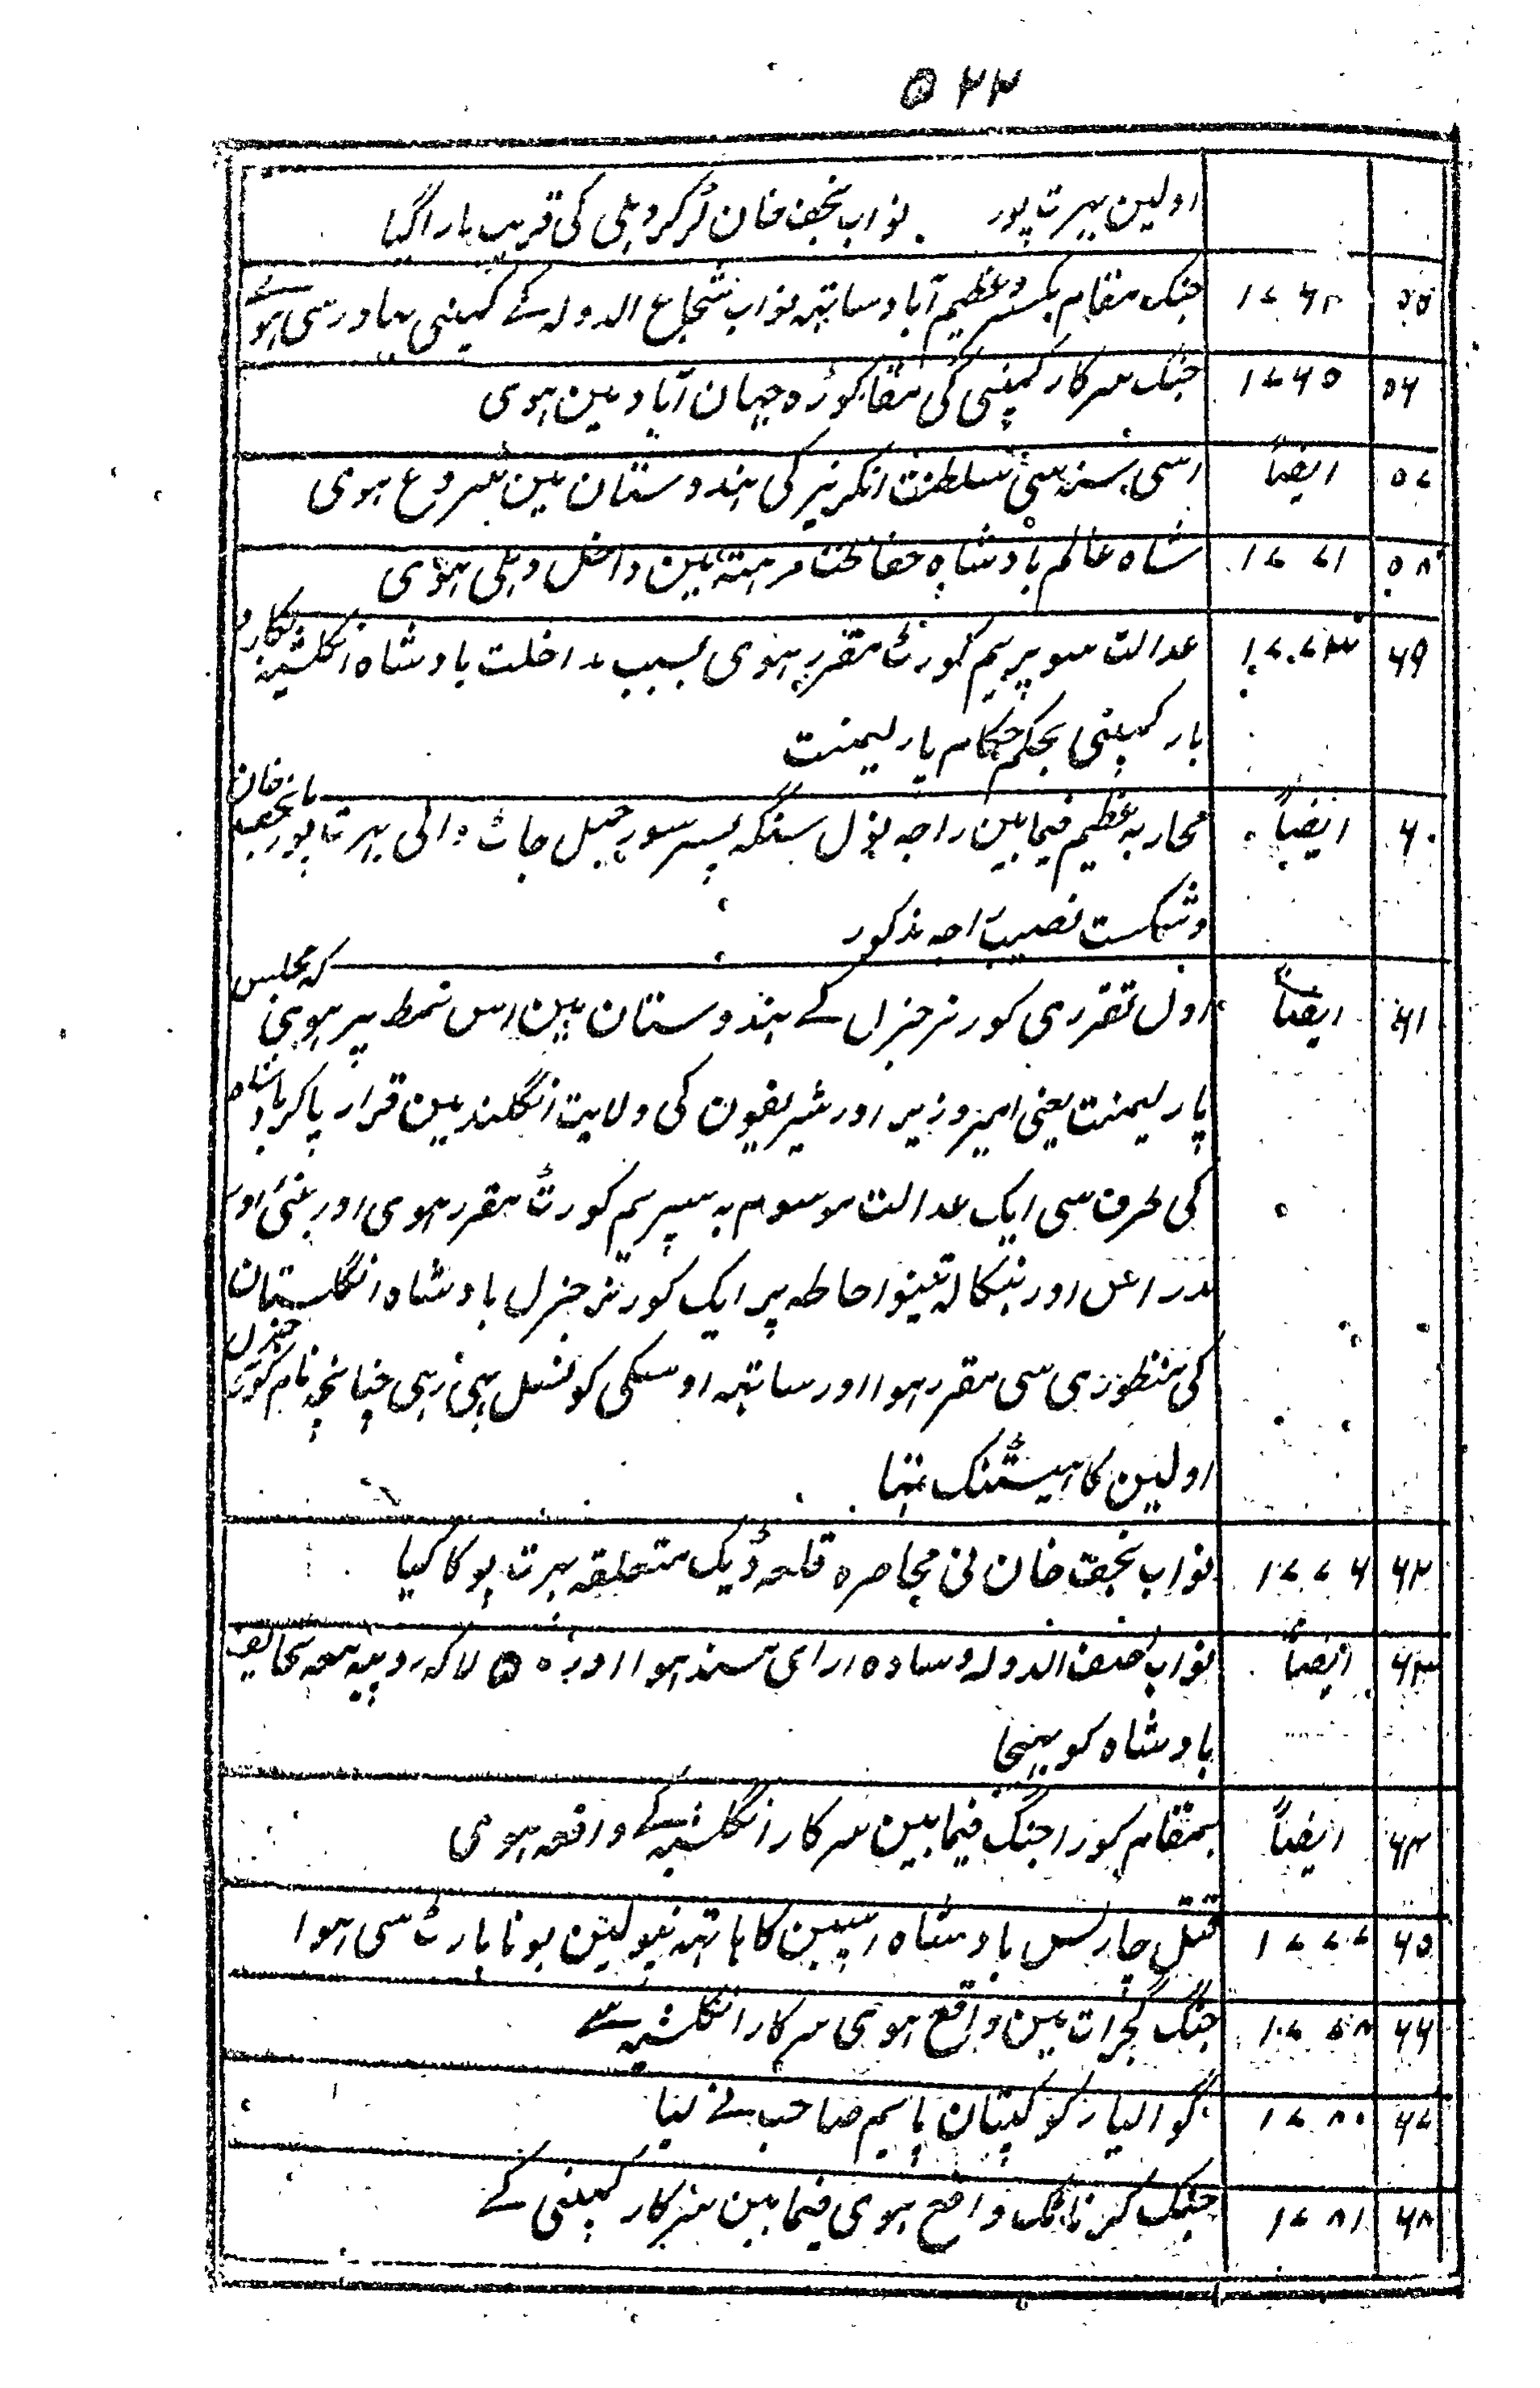 ۵۲۲
اولین بہرت پور نواب نجف خان لڑکر دہلی کی قریب مارا گیا
۵۵ ۱۷۶۴ جنگ مقام بکسر و عظیم آباد ساتہہ نواب شجاع الدولہ کے کمپنی بہادر سی ہوئے
۵۶ ۱۷۶۵ جنگ سرکار کمپنی کی مقام کوڑہ جہان آباد مین ہوی
۵۷ ایضاً اسی سنہ سی سلطنت انگریز کی ہندوستان مین شروع ہوی
۵۸ ۱۷۷۱ شاہ عالم بادشاہ حفاظت مرہتہ مین داخل دہلی ہوی
۶۹ ۱۷۷۳ عدالت سوپریم کورٹ مقرر ہوی بسبب مداخلت بادشاہ انگلشیہ بکارو
بار کمپنی بحکم حکام پارلیمنت
۶۰ ایضاً محاربہ عظیم فیمابین راجہ نول سنگہ پسر سورجمل جاٹ والی بہرت پور با نجف خان
و شکست نصیب راجہ مذکور
۶۱ ایضاً اول تقرری کورنر جنرل کے ہندوستان مین اس نمط پر ہوئی کہ مجلس
پارلیمنت یعنی امیر وزیر اور شریفون کی ولایت انگلند مین قرار پاکر بادشاہ
کی طرف سی ایک عدالت موسوم بہ سپریم کورٹ مقرر ہوی اور بنبئی اور
مدراس اور بنکالہ تینو احاطہ پر ایک کورنر جنرل بادشاہ انگلستان
کی منظوری سی مقرر ہوا اور ساتہہ اوسکی کونسل بہی رہی چنانچہ نام کورنر جنرل
اولین کا ہیسٹنک تہا
۶۲ ۱۷۷۶ نواب نجف خان نی محاصرہ قلعہ ڈیک متعلقہ بہرت پور کا کیا
۶۳ ایضاً نواب اصف الدولہ وسادہ ارای مسند ہوا اور ۵۰ لاکہہ روپیہ معہ تحایف
بادشاہ کو بہیجا
۶۴ ایضاً بمقام کورا جنگ فیمابین سرکار انگلشیہ کے واقعہ ہوی
۶۵ ۱۷۷۷ قتل چارلس بادشاہ اسپین کا ہاتہہ نیولین بوناپارٹ سی ہوا
۶۶ ۱۷۷۸ جنگ گجرات مین واقع ہوی سرکار انگلشیہ سے
۶۷ ۱۷۸۰ گوالیار کو کپتان پاپہم صاحب نے لیا
۶۸ ۱۷۸۱ جنگ کرناٹک واقع ہوی فیمابین سرکار کمپنی کے